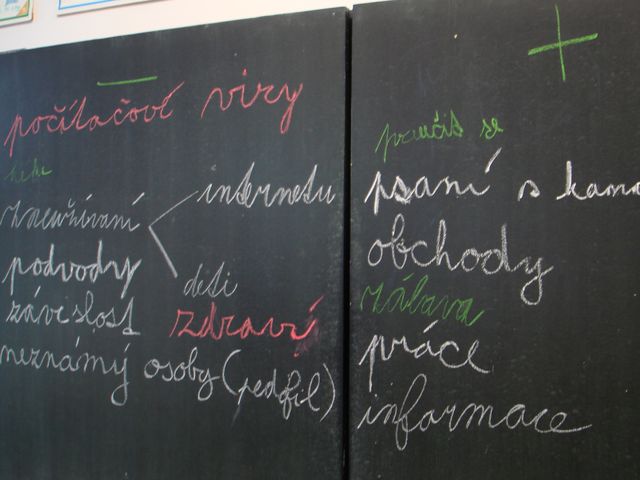 —
počítačové viry
zneužívání
internetu
děti
podvody
závislost
zdraví
neznámý osoby (pedofil)
+
psaní s kama
obchody
zábava
práce
informace